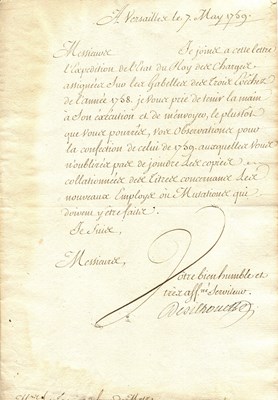 A Versailles le 7. May 1759.
Messieurs Je joins a cette lettre
l'Expedition de l'Etat du Roy des Charges
assignées Sur les Gabelles des Trois Evêchés
de l'année 1758. je vous prie de tenir la main
a Son éxécution et de m'envoyer, le plustot
que vous pourrés, vos Observations pour
la confection de celui de 1759. auxquelles vous
n'oublierés pas de joindre des copies
collationnées des titres concernans les
nouveaux Employs ou Mutations qui
doivent y etre faits.
Je Suis,
Messieurs,
Votre bien humble et
très affné Serviteur.
De Silhouette